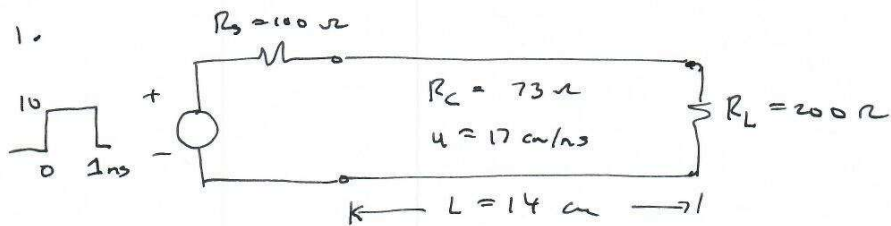 1.
R_S = 100 Ω
10
+
-
0 1ns
R_C = 73 Ω
u = 17 cm/ns
R_L = 200 Ω
L = 14 cm